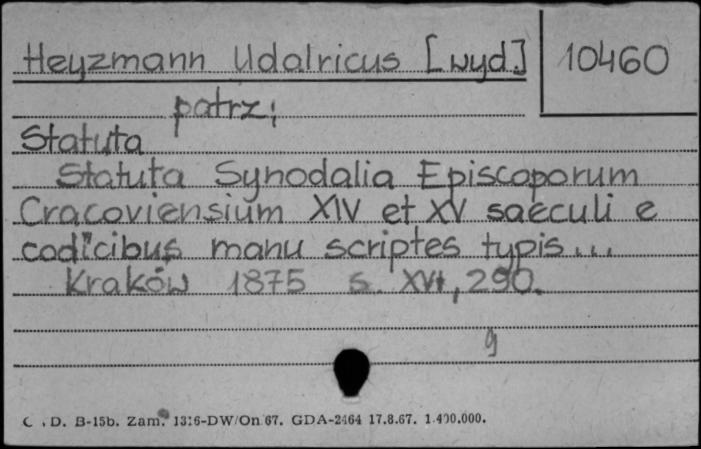 Heyzmann Udalricus [wyd.] 10460
patrz:
Statuta
Statuta Synodalia Episcoporum
Cracoviensium XIV et XV saeculi e
codicibus manu scriptes typis...
Kraków 1875 s. XVI, 290.
g
D. B-15b. Zam. 1316-DW/On/67. GDA-2464 17.8.67. 1.400.000.